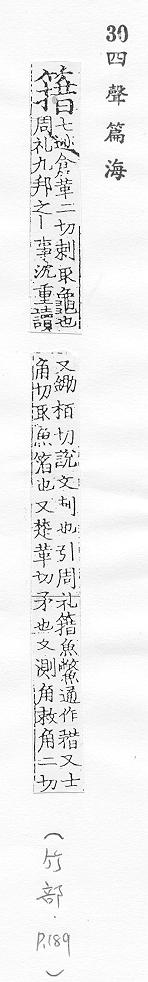 30 四聲篇海
簎 七迹倉革二切刺取龜也
周礼九邦之丨事沈重讀
又鋤栢切說文刺也引周礼簎魚鱉通作矠又士
角切取魚箬也又楚革切矛也又測角救角二切
(竹部．P.189)